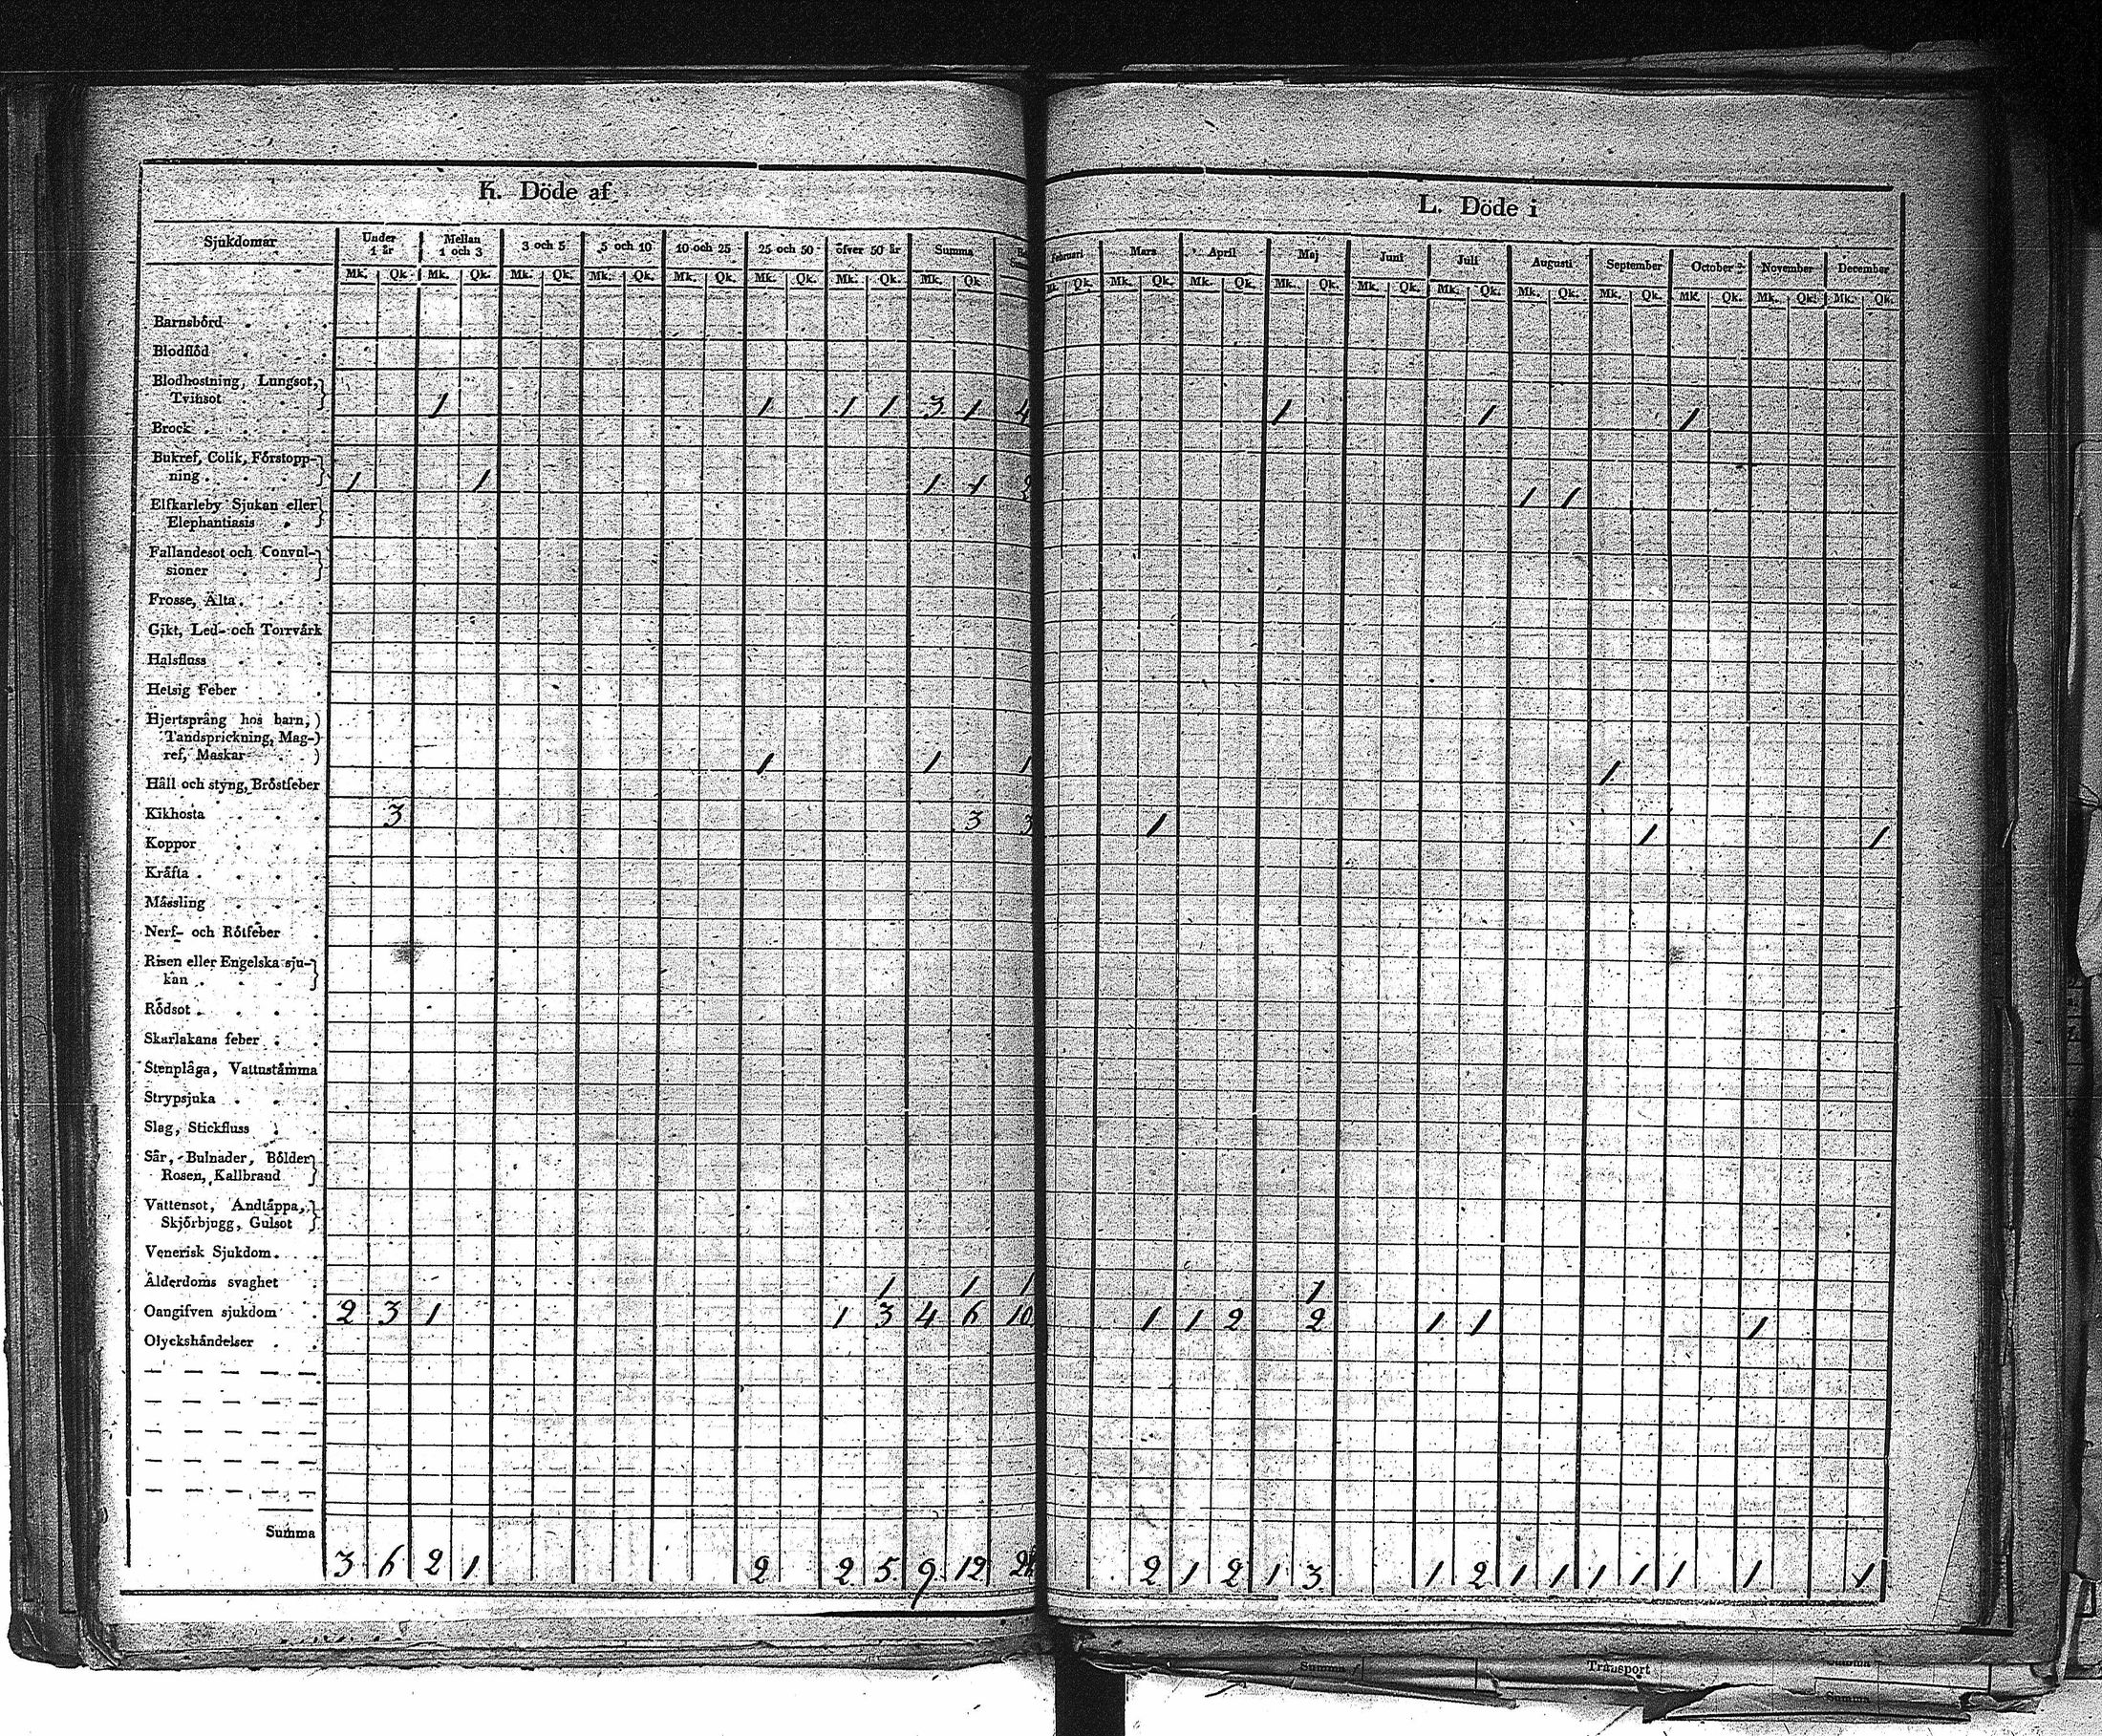 K. Döde af
L. Döde i
Sjukdomar Under 1 år Mellan 1 och 3 3 och 5 5 och 10 10 och 25 25 och 50 öfver 50 år Summa
Februari Mars April Maj Juni Juli Augusti September October November December
Mk. Qk. Mk. Qk. Mk. Qk. Mk. Qk. Mk. Qk. Mk. Qk. Mk. Qk. Mk. Qk.
Qk. Mk. Qk. Mk. Qk. Mk. Qk. Mk. Qk. Mk. Qk. Mk. Qk. Mk. Qk. Mk. Qk. Mk. Qk. Mk. Qk.
Barnsbörd
Blodflöd
Blodhostning, Lungsot,
Tvinsot 1 1 1 1 3 1 4 1 1 1
Brock
Bukref, Colik, Förstopp-
ning 1 1 1 1 2 1 1
Elfkarleby Sjukan eller
Elephantiasis
Fallandesot och Convul-
sioner
Frosse, Älta
Gikt, Led- och Torrvärk
Halsfluss
Hetsig Feber
Hjertsprång hos barn,
Tandsprickning, Mag-
ref, Maskar 1 1 1 1
Håll och styng, Bröstfeber
Kikhosta 3 3 3 1 1 1
Koppor
Kräfta
Mässling
Nerf- och Rötfeber
Risen eller Engelska sju-
kan
Rödsot
Skarlakans feber
Stenplåga, Vattustämma
Strypsjuka
Slag, Stickfluss
Sår, Bulnader, Bölder
Rosen, Kallbrand
Vattensot, Andtäppa,
Skjörbjugg, Gulsot
Venerisk Sjukdom
Ålderdoms svaghet 1 1 1 1
Oangifven sjukdom 2 3 1 1 3 4 6 10 1 1 2 2 1 1 1
Olyckshändelser
Summa
3 6 2 1 2 2 5 9 12 2 1 2 1 3 1 2 1 1 1 1 1 1 1
Summa Transport Summa
Summa